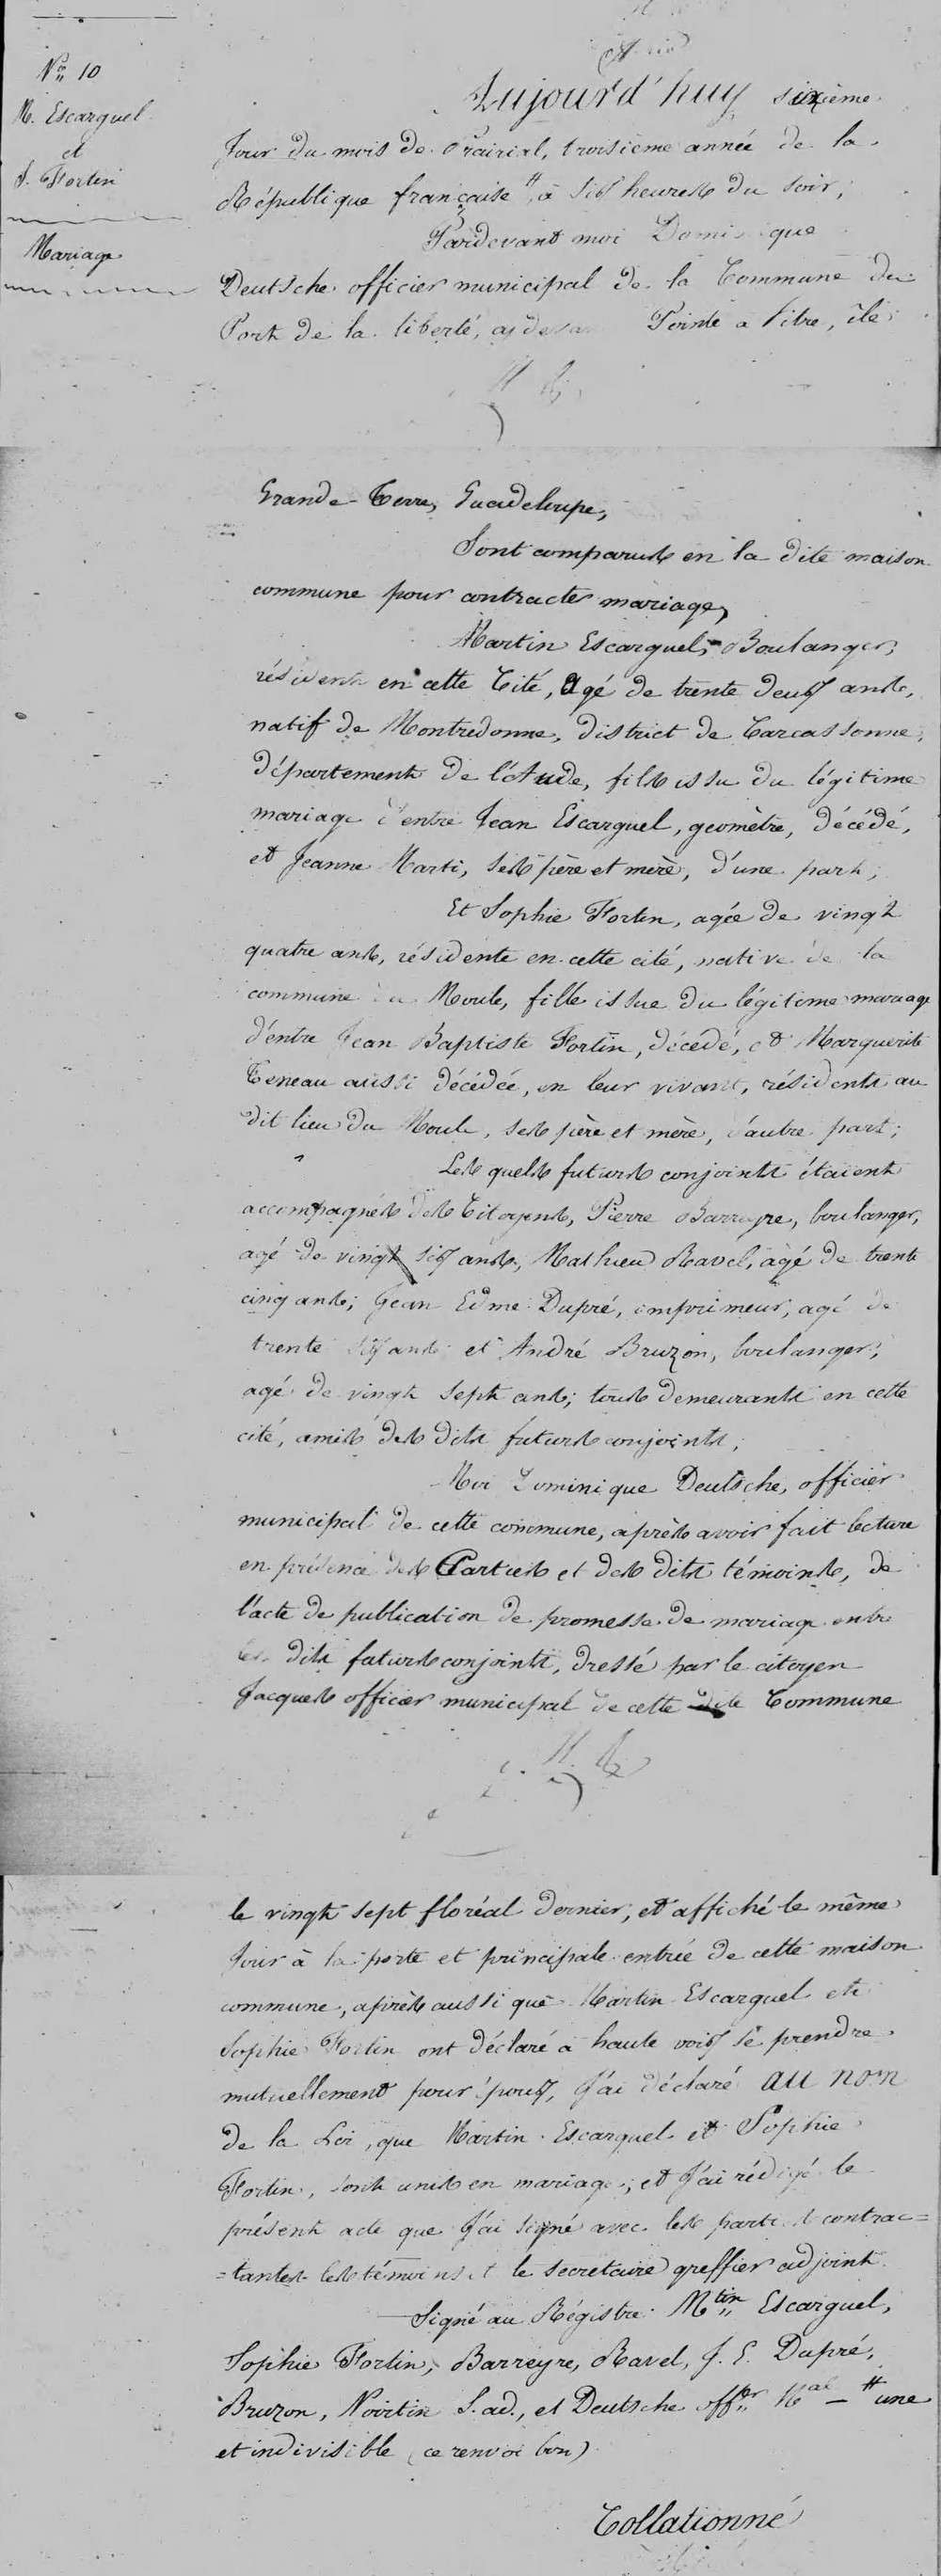 N° 10
M. Escarguel
et
S. Fortin
Mariage
Aujourd'huy sixième
Jour du mois de Prairial, troisième année de la
République française # à six heures du soir,
Pardevant moi Dominique
Deutsche officier municipal de la Commune du
Port de la liberté, Pointe a Pitre, île
Grande-Terre, Guadeloupe,
Sont comparus en la dite maison
commune pour contracter mariage,
Martin Escarguel, Boulanger,
résident en cette Cité, agé de trente deux ans,
natif de Montredonne, district de Carcassonne,
département de l'Aude, fils issu du légitime
mariage d'entre Jean Escarguel, geomètre, décédé,
et Jeanne Marti, ses père et mère, d'une part,
Et Sophie Fortin, agée de vingt
quatre ans, résidente en cette cité, native de la
commune du Moule, fille issue du légitime mariage
d'entre Jean Baptiste Fortin, décédé, et Marguerite
Teneau aussi décédée, en leur vivant, résidents au
dit lieu du Moule, ses père et mère, d'autre part;
Les quels futurs conjoints étaient
accompagnés des Citoyens, Pierre Barreyre, boulanger,
agé de vingt six ans, Mathieu Ravel, agé de trente
cinq ans; Jean Edme Dupré, imprimeur, agé de
trente six ans et André Bruzon, boulanger,
agé de vingt sept ans; tous demeurants en cette
cité, amis des dits futurs conjoints;
Moi Dominique Deutsche, officier
municipal de cette commune, après avoir fait lecture
en présence des Parties et des dits témoins, de
l'acte de publication de promesse de mariage entre
les dits futurs conjoints, dressé par le citoyen
Jacques officier municipal de cette dite Commune
le vingt sept floréal dernier, et affiché le même
Jour à la porte et principale entrée de cette maison
commune, après aussi que Martin Escarguel et
Sophie Fortin ont déclaré à haute voix se prendre
mutuellement pour époux, J'ai déclaré au nom
de la Loi, que Martin Escarguel et Sophie
Fortin, sont unis en mariage, et J'ai rédigé le
présent acte que J'ai signé avec les parties contrac=
=tantes les témoins et le secretaire greffier adjoint
Signé au Régistre. Mtin Escarguel,
Sophie Fortin, Barreyre, Ravel, J. E. Dupré,
Bruzon, Noirtin S. ad., et Deutsche offer Mal — # une
et indivisible (ce renvoi bon)
Collationné